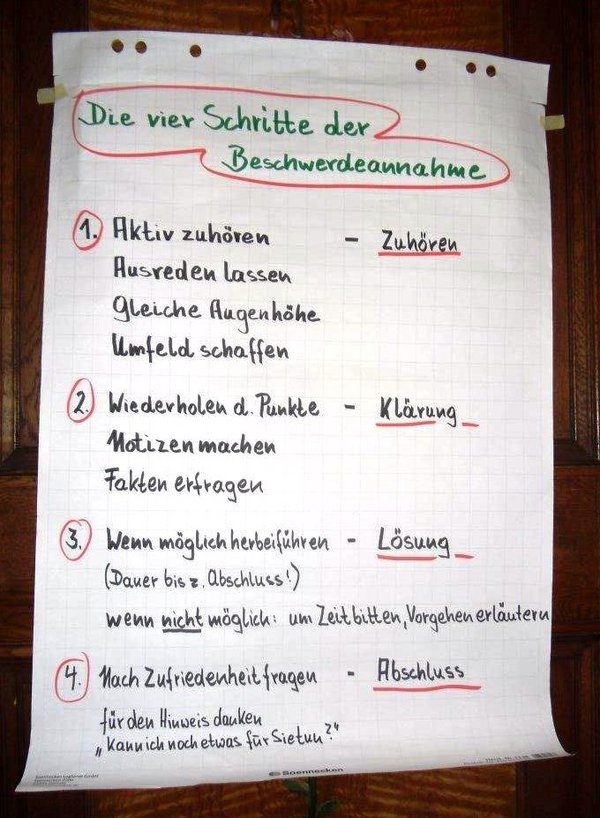 Die vier Schritte der
Beschwerdeannahme
1. Aktiv zuhören - Zuhören
Ausreden lassen
Gleiche Augenhöhe
Umfeld schaffen
2. Wiederholen d. Punkte - Klärung
Notizen machen
Fakten erfragen
3. Wenn möglich herbeiführen - Lösung
(Dauer bis z. Abschluss!)
wenn nicht möglich: um Zeit bitten, Vorgehen erläutern
4. Nach Zufriedenheit fragen - Abschluss
für den Hinweis danken
„Kann ich noch etwas für Sie tun?"
Soennecken